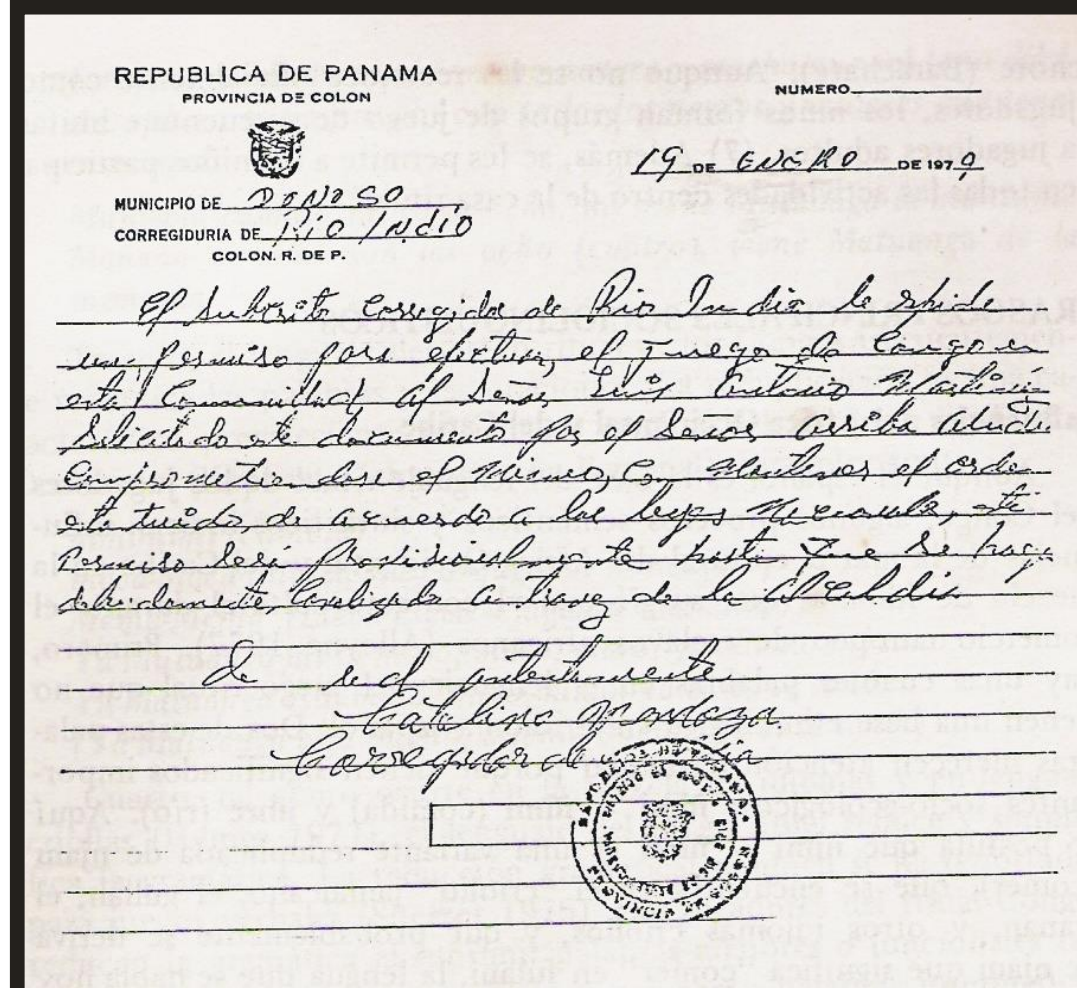 REPUBLICA DE PANAMA
PROVINCIA DE COLON
NUMERO
19 DE ENERO DE 1979
MUNICIPIO DE DONOSO
CORREGIDURIA DE Río Indío
COLON. R. DE P.
El Subscrito Corregidor de Rio Indio le
un permiso para efectuar, el Juego de Congo en
esta Comunidad Al Señor Luis Antonio Martinez
Solicitado este documento por el Señor Arriba
Comprometiendose el Mismo, Con Mantener el orden
estatuido, de acuerdo a las leyes Nacionales, este
Permiso Será Provisionalmente hasta que se haga
debidamente, atravez de la Alcaldia
de Ud atentamente
Catalino Mendoza
Corregidor de